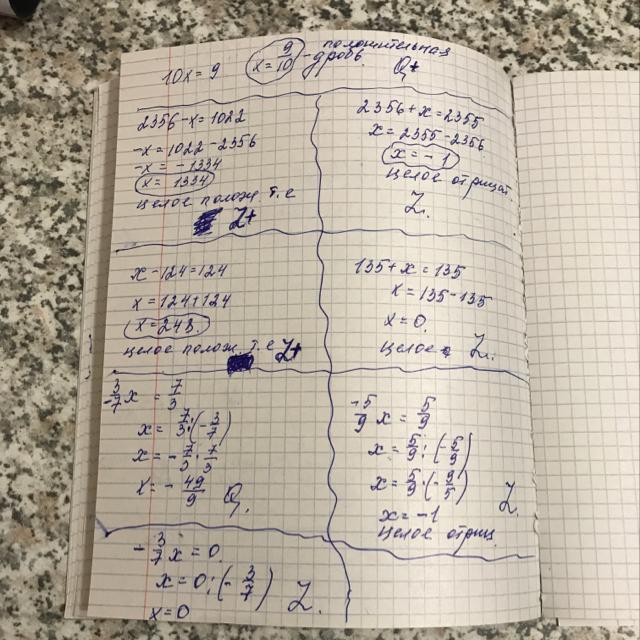 10x = 9 x = 9/10 - положительная дробь Q+
2356 - x = 1022
-x = 1022 - 2356
-x = -1334
x = 1334
целое полож. т.е
Z+
2356 + x = 2355
x = 2355 - 2356
x = -1
целое отрицат.
Z.
x - 124 = 124
x = 124 + 124
x = 248.
целое полож. т.е Z+
135 + x = 135
x = 135 - 135
x = 0.
целое Z.
-3/7 x = 7/3
x = 7/3 : (-3/7)
x = -7/3 · 7/3
x = -49/9 Q.
-5/9 x = 5/9
x = 5/9 : (5/9)
x = 5/9 · (-9/5)
x = -1 Z.
целое отриц.
-3/7 x = 0.
x = 0 : (-3/7) Z.
x = 0